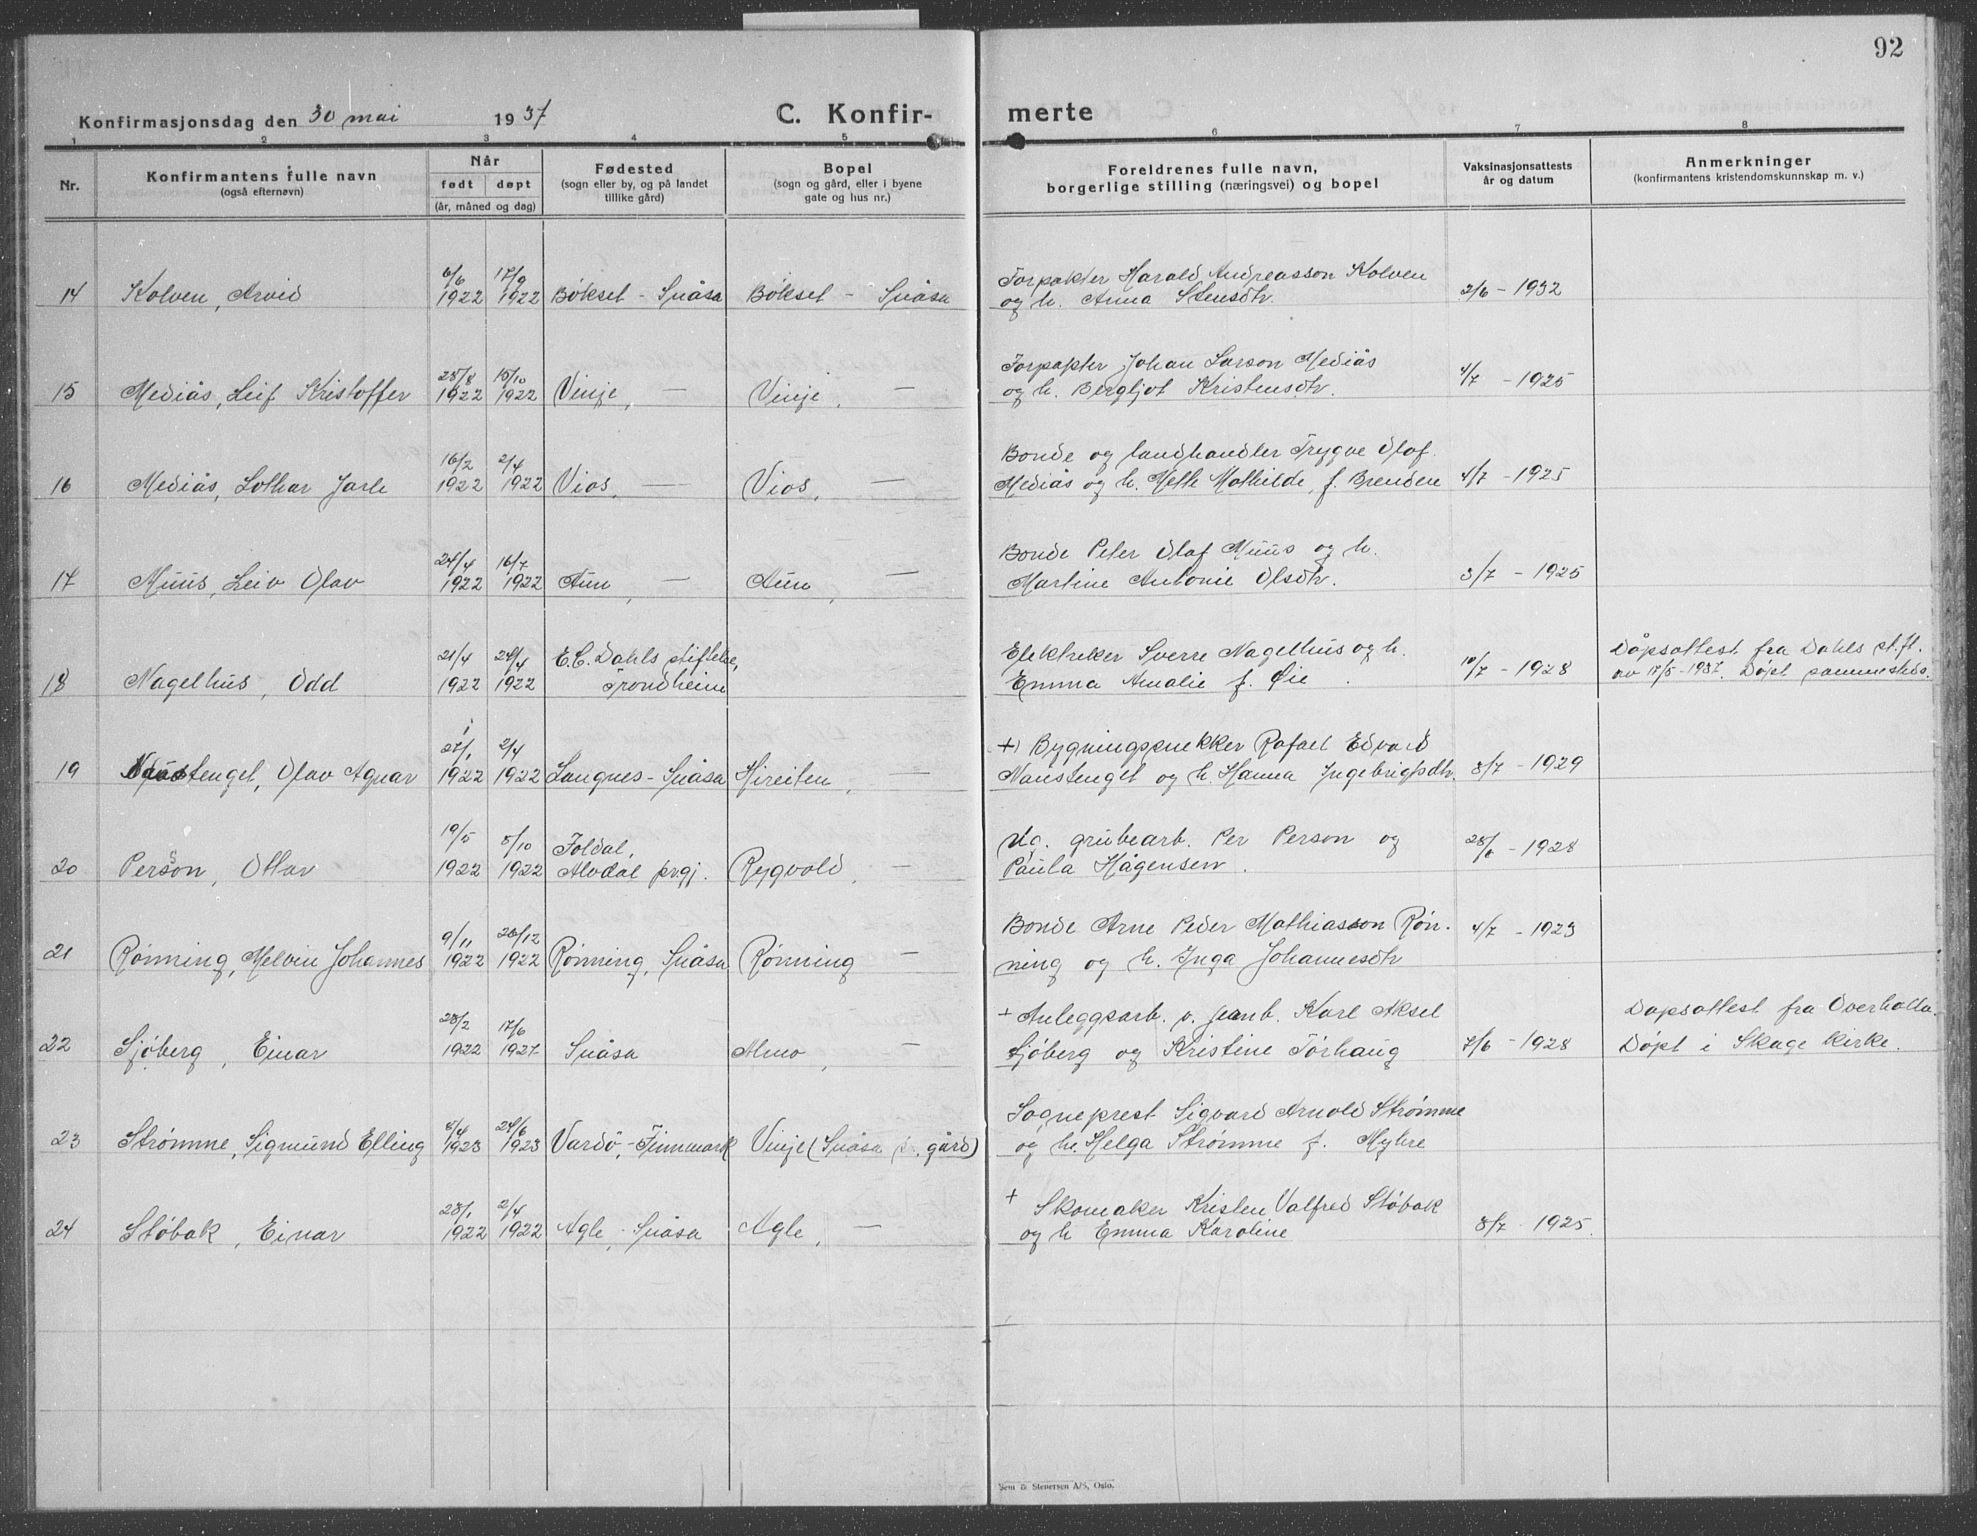 92
Konfirmasjonsdag den 30 mai 1937 C. Konfir- merte
1 2 3 4 5 6 7 8
Nr. Konfirmantens fulle navn (også efternavn) Når født døpt (år, måned og dag) Fødested (sogn eller by, og på landet tillike gård) Bopel (sogn og gård, eller i byene gate og hus nr.) Foreldrenes fulle navn, borgerlige stilling (næringsvei) og bopel Vaksinasjonsattests år og datum Anmerkninger (konfirmantens kristendomskunnskap m. v.)
14 Kolven, Arvid 6/6 1922 17/9 1922 Bøkset - Snåsa Bøkset - Snåsa Forpakter Harald Andreasson Kolven
og h. Anna Stensdtr. 2/6 - 1932
15 Mediås, Leif Kristoffer 25/8 1922 15/10 1922 Vinje, — Vinje, — Forpakter Johan Larson Mediås
og h. Bergljot Kristensdtr. 4/7 - 1925
16 Mediås, Lothar Jarle 16/2 1922 2/4 1922 Vios, — Vios, — Bonde og landhandler Trygve Olaf
Mediås og h. Mette Mathilde, f. Brenden 4/7 - 1925
17 Muus, Leiv Olav 24/4 1922 16/7 1922 Aun, — Aun, — Bonde Peter Olaf Muus og h.
Martine Antonie Olsdtr. 3/7 - 1925
18 Nagelhus, Odd 21/4 1922 24/4 1922 E.C. Dahls stiftelse, Trondheim Elektriker Sverre Nagelhus og h.
Emma Amalie f. Øie. 10/7 - 1928 Dåpsattest fra Dahls st.ft.
av 11/5-1937. Døpt sammesteds.
19 Naustenget, Olav Agnar 27/1 1922 2/4 1922 Langnes - Snåsa Hireiten, — +) Bygningssnekker Rafael Edvard
Naustenget og h. Hanna Ingebrigtsdtr. 8/7 - 1929
20 Person, Ottar 19/5 1922 8/10 1922 Foldal, Alvdal prgj. Rygvold, — Ug. grubearb. Per Person og
Paula Hågensen. - 1928
21 Rønning, Melvin Johannes 9/11 1922 26/12 1922 Rønning, Snåsa Rønning — Bonde Arne Peder Mathiasson Røn-
ning og h. Inga Johannesdtr 4/7 - 1923
22 Sjøberg, Einar 28/2 1922 17/6 1927 Snåsa Almo, — + Anleggsarb. v. jernb. Karl Aksel
Sjøberg og Kristine Tørhaug 7/6 - 1928 Dåpsattest fra Overhalla.
Døpt i Skage kirke.
23 Strømme, Sigmund Elling 5/4 1923 24/6 1923 Vardø, - Finnmark Vinje (Snåsa pr. gård) Sogneprest Sigvard Arnold Strømme
og h. Helga Strømme f. Myhre
24 Støbak, Einar 28/1 1922 2/4 1922 Agle, Snåsa Agle, — + Skomaker Kristen Valfred Støbak
og h Emma Karoline 8/7 - 1925.
Sem & Stenersen A/S, Oslo.